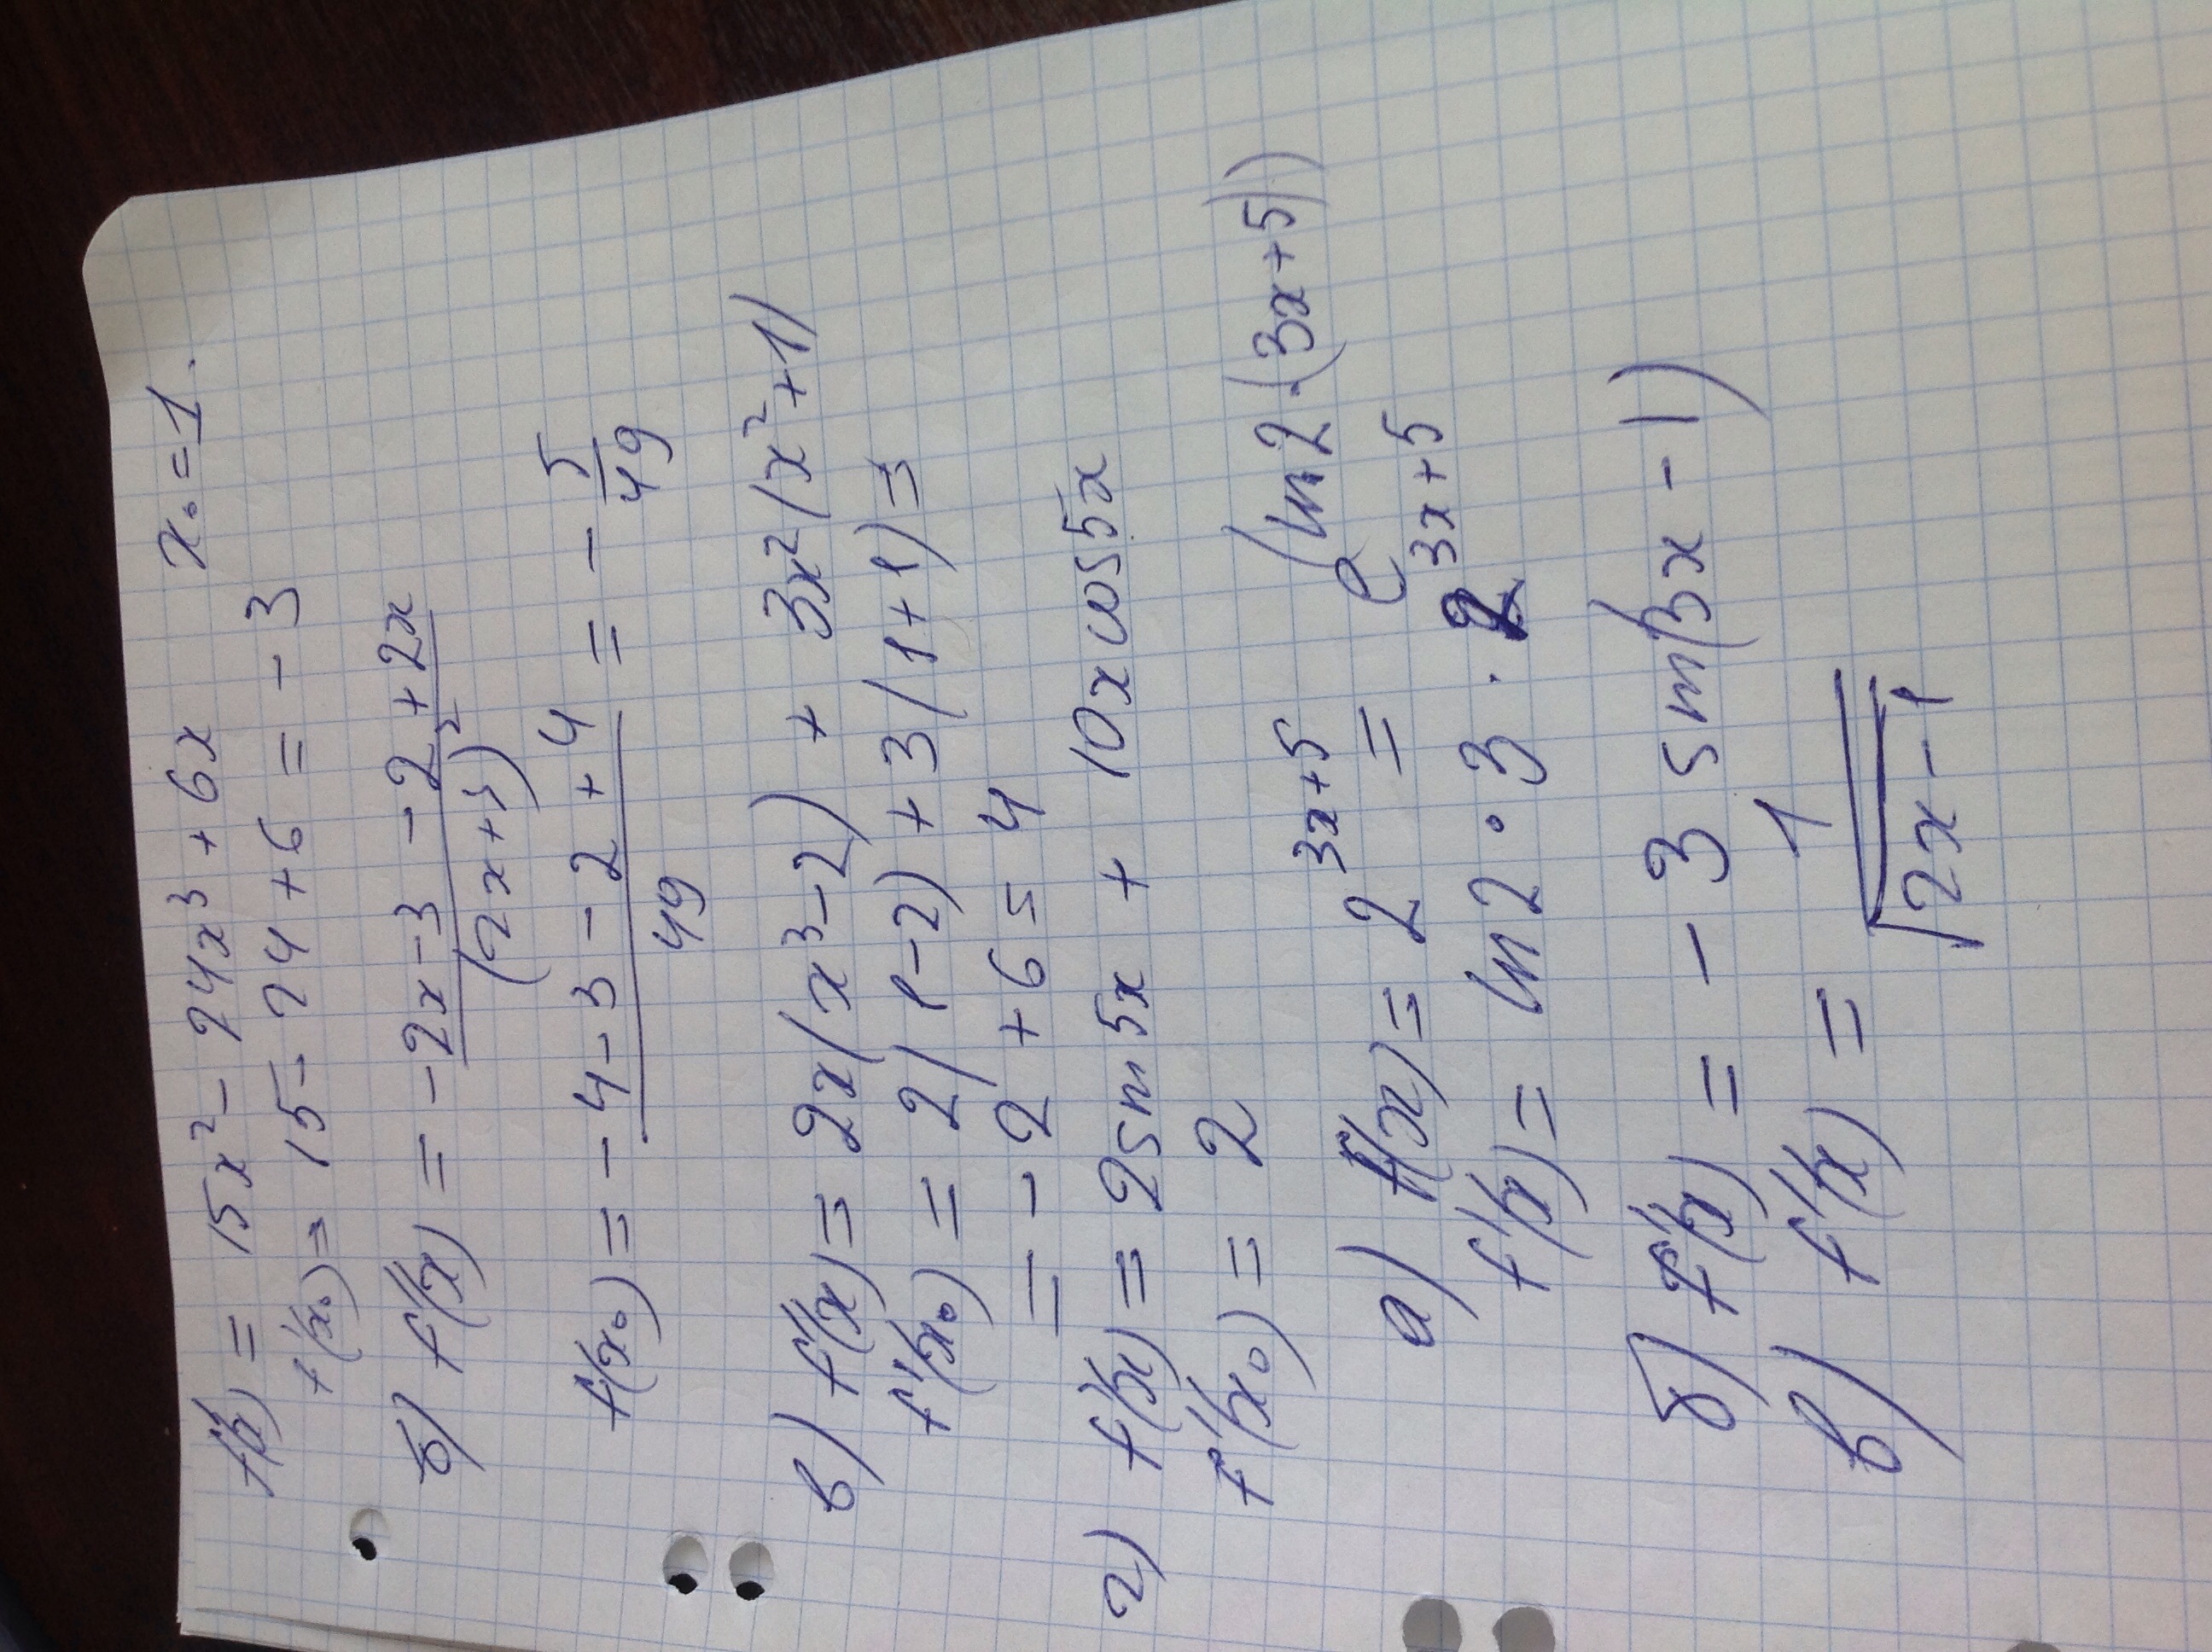 f'(x) = 15x² - 24x³ + 6x   x₀ = 1.
f'(x₀) = 15 - 24 + 6 = - 3
б) f'(x) = - 2x - 3 - 2 + 2x / (2x + 5)²
f'(x₀) = - 4 - 3 - 2 + 4 / 49 = - 5/49
в) f'(x) = 2x(x³ - 2) + 3x²(x² + 1)
f'(x₀) = 2(1 - 2) + 3(1 + 1) =
= - 2 + 6 = 4
г) f'(x) = 2sin5x + 10xcos5x
f'(x₀) = 2
а) f(x) = 2^(3x+5) = e^(ln2·(3x+5))
f'(x) = ln2 · 3 · 2^(3x+5)
б) f'(x) = - 3 sin(3x - 1)
в) f'(x) = 1 / √(2x - 1)